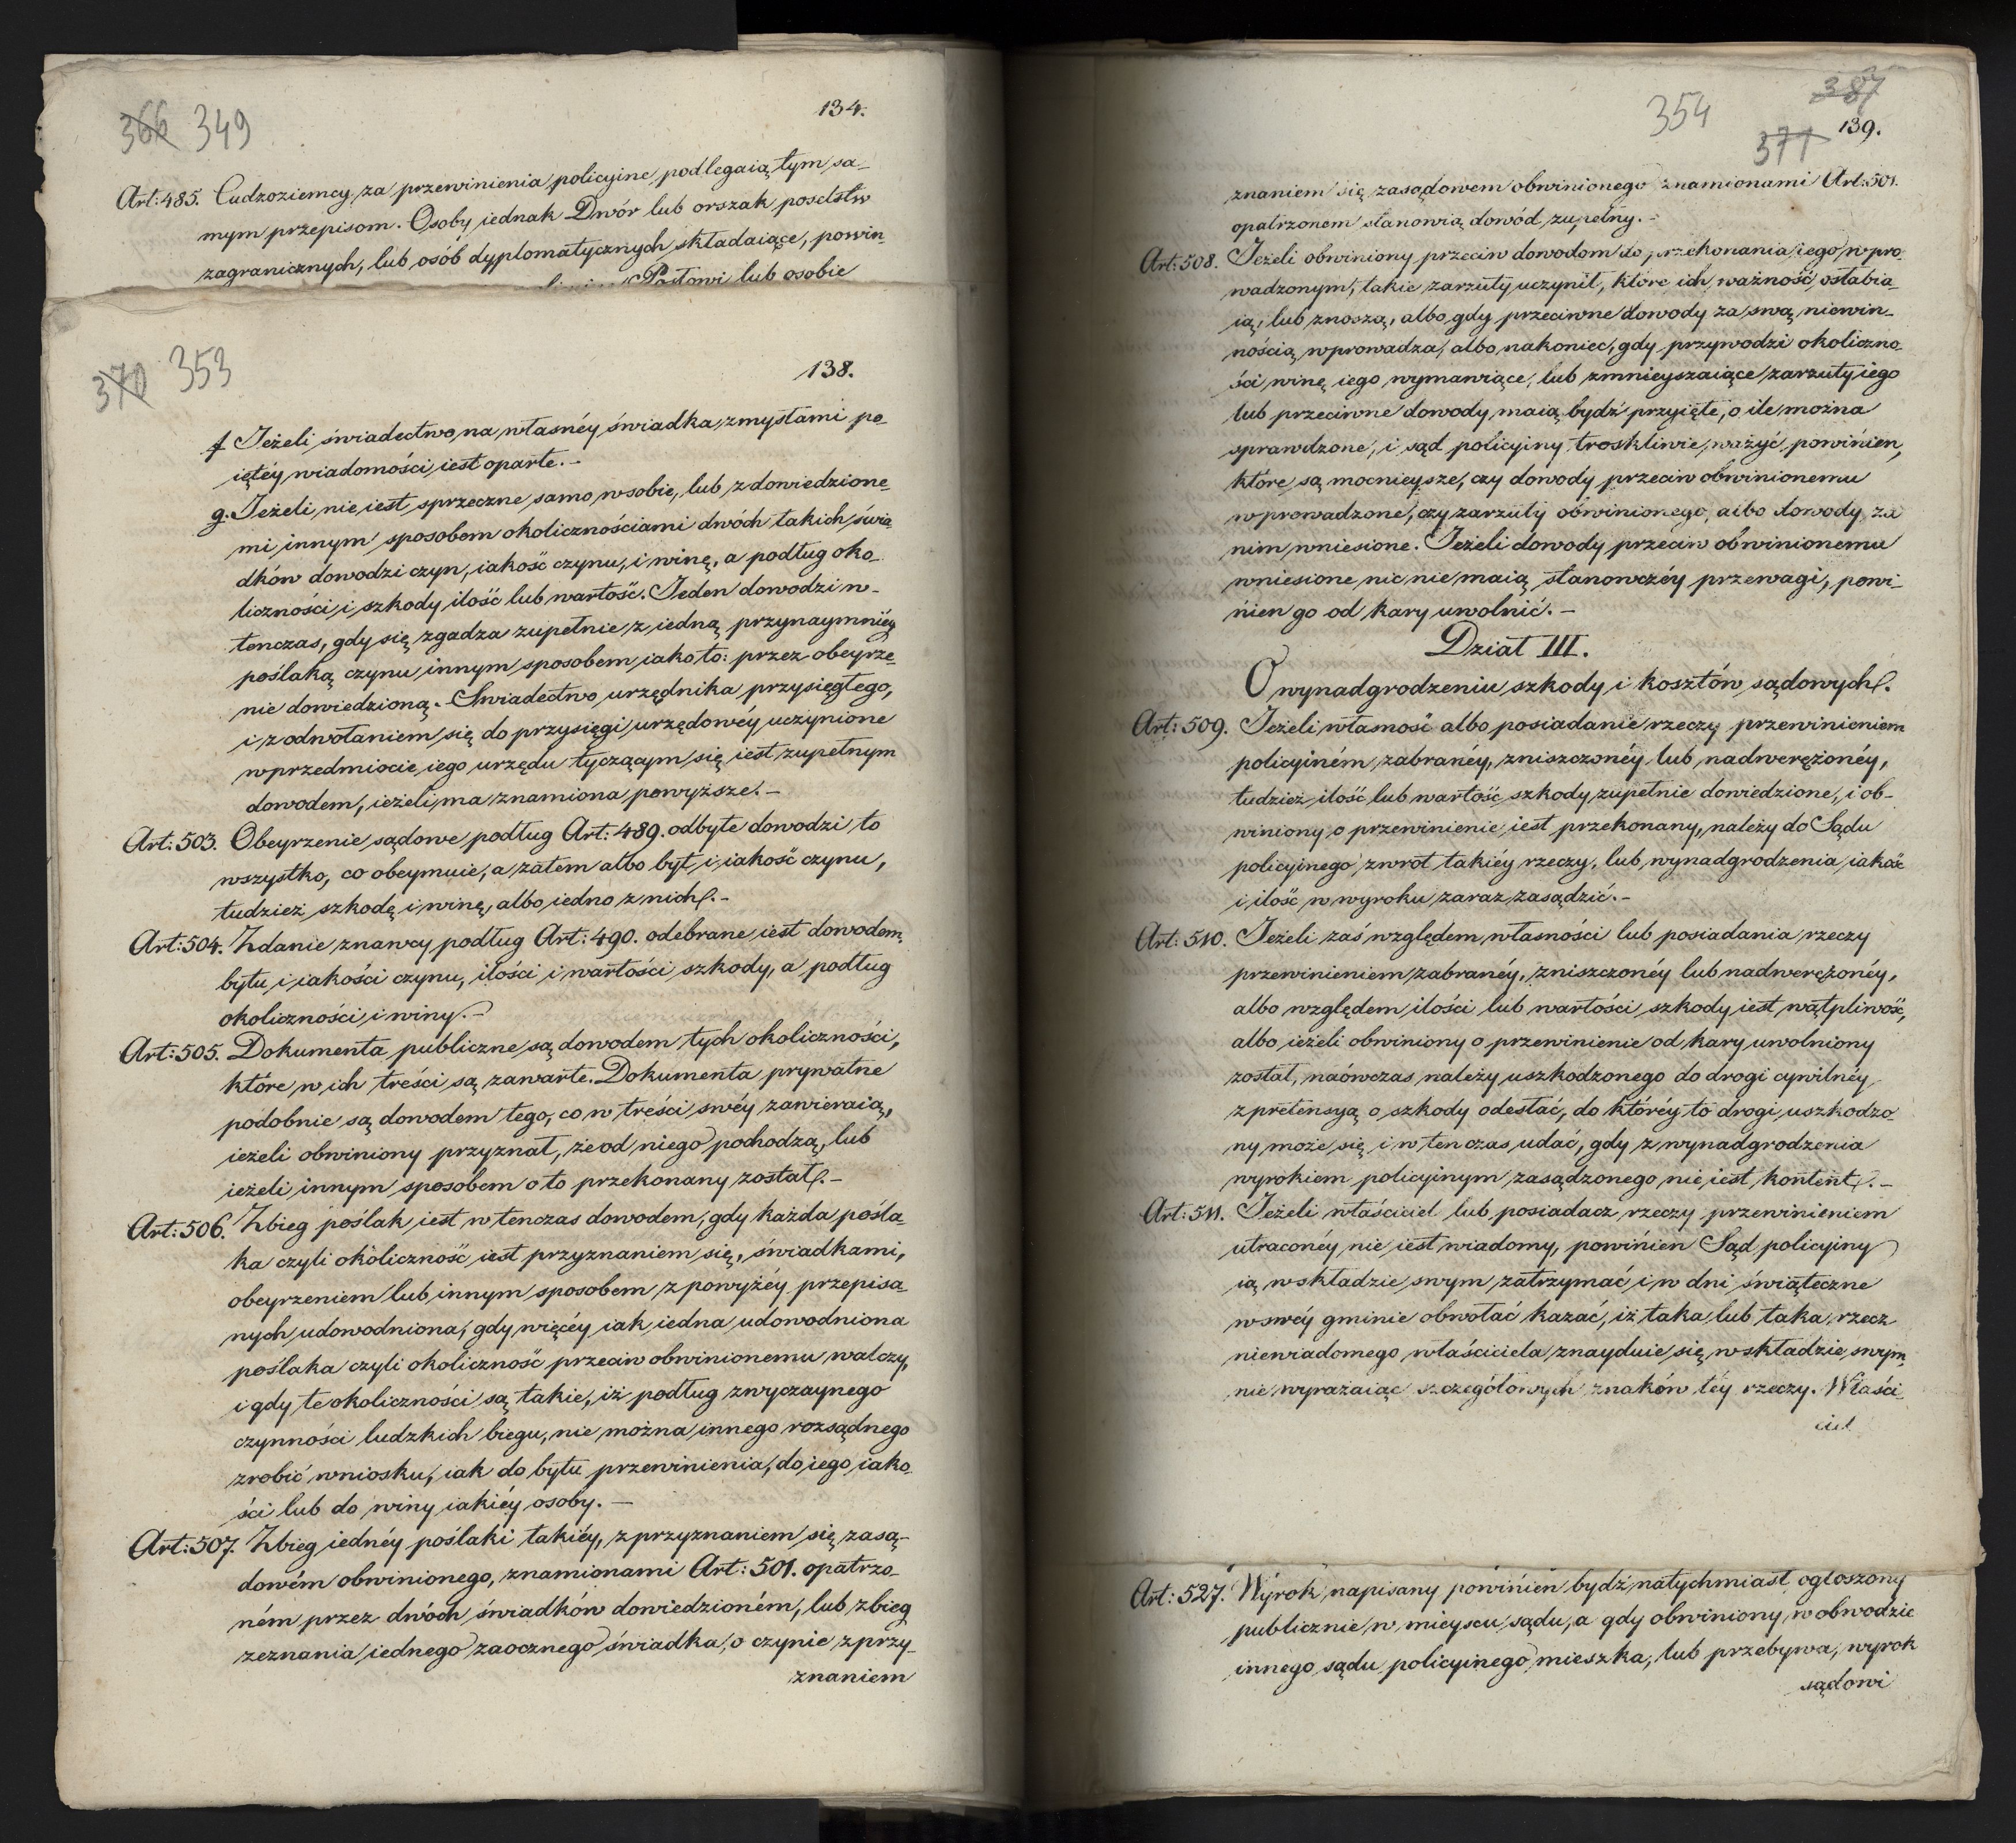 366 349
134.
Art: 485. Cudzoziemcy za przewinienia policyine podlegaią tym sa-
mym przepisom. Osoby iednak Dwór lub orszak poselstw
zagranicznych, lub osób dyplomatycznych składaiące, powin-
Posłowi lub osobie
370 353
138.
f Jeżeli świadectwo na własnéy świadka zmysłami po-
iętéy wiadomości iest oparte.-
g. Jeżeli nie iest sprzeczne samo w sobie, lub z dowiedzione-
mi innym sposobem okolicznościami dwóch takich świa-
dków dowodzi czyn, iakość czynu, i winę, a podług oko-
liczności i szkody ilość lub wartość. Jeden dowodzi w-
tenczas, gdy się zgadza zupełnie z iedną przynaymniéy
poślaką czynu innym sposobem iako to: przez obeyrze-
nie dowiedzioną.- Swiadectwo urzędnika przysięgłego,
i z odwołaniem się do przysięgi urzędowéy uczynione
w przedmiocie iego urzędu tyczącym się iest zupełnym
dowodem, ieżeli ma znamiona powyższe.-
Art: 503. Obeyrzenie sądowe podług Art: 489. odbyte dowodzi to
wszystko, co obeymuie, a zatem albo byt i iakość czynu,
tudzież szkodę i winę, albo iedno z nich.-
Art: 504. Zdanie znawcy podług Art: 490. odebrane iest dowodem
bytu i iakości czynu, ilości i wartości szkody, a podług
okoliczności i winy.-
Art: 505. Dokumenta publiczne są dowodem tych okoliczności,
które w ich treści są zawarte. Dokumenta prywatne
podobnie są dowodem tego, co w treści swéy zawieraią,
ieżeli obwiniony przyznał, że od niego pochodzą, lub
ieżeli innym sposobem o to przekonany został.-
Art: 506. Zbieg poślak iest w tenczas dowodem, gdy każda pośla-
ka czyli okoliczność iest przyznaniem się, świadkami,
obeyrzeniem lub innym sposobem z powyżéy przepisa-
nych udowodniona, gdy więcéy iak iedna udowodniona
poślaka czyli okoliczność przeciw obwinionemu walczy,
i gdy te okoliczności są takie, iż podług zwyczaynego
czynności ludzkich biegu, nie można innego rozsądnego
zrobić wniosku, iak do bytu przewinienia, do iego iako-
ści lub do winy iakiéy osoby.-
Art: 507. Zbieg iednéy poślaki takiéy, z przyznaniem się zasą-
dowém obwinionego, znamionami Art: 501. opatrzo-
ném przez dwóch świadków dowiedzioném, lub zbieg
zeznania iednego zaocznego świadka o czynie z przy-
znaniem
387
354
371 139.
znaniem się zasądowem obwinionego znamionami Art: 501.
opatrzonem stanowią dowód zupełny.-
Art: 508. Jeżeli obwiniony przeciw dowodom do przekonania iego wpro-
wadzonym, takie zarzuty uczynił, które ich ważność osłabia-
ią, lub znoszą, albo gdy przeciwne dowody za swą niewin-
nością wprowadza, albo nakoniec, gdy przywodzi okoliczno-
ści winę iego wymawiące, lub zmnieyszaiące zarzuty iego
lub przeciwne dowody maią bydź przyięte, o ile można
sprawdzone, i sąd policyiny troskliwie ważyć powinien,
które są mocnieysze, czy dowody przeciw obwinionemu
wprowadzone, czy zarzuty obwinionego, albo dowody za
nim wniesione. Jeżeli dowody przeciw obwinionemu
wniesione nic nie maią stanowczéy przewagi, powi-
nien go od kary uwolnić.-
Dział III.
O wynadgrodzeniu szkody i kosztów sądowych.
Art: 509. Jeżeli własność albo posiadanie rzeczy przewinieniem
policyiném zabranéy, zniszczonéy lub nadwerężonéy,
tudzież ilość lub wartość szkody zupełnie dowiedzione, i ob-
winiony o przewinienie iest przekonany, należy do Sądu
policyinego zwrot takiéy rzeczy, lub wynadgrodzenia iakość
i ilość w wyroku zaraz zasądzić.-
Art: 510. Jeżeli zaś względem własności lub posiadania rzeczy
przewinieniem zabranéy, zniszczonéy lub nadwerężonéy,
albo względem ilości lub wartości szkody iest wątpliwość,
albo ieżeli obwiniony o przewinienie od kary uwolniony
został, naówczas należy uszkodzonego do drogi cywilnéy
z pretensyą o szkody odesłać, do któréy to drogi uszkodzo-
ny może się i w ten czas udać, gdy z wynadgrodzenia
wyrokiem policyinym zasądzonego nie iest kontent.-
Art: 511. Jeżeli właściciel lub posiadacz rzeczy przewinieniem
utraconéy nie iest wiadomy, powinien Sąd policyiny
ią w składzie swym zatrzymać i w dni świąteczne
w swéy gminie obwołać kazać, iż taka lub taka rzecz
niewiadomego właściciela znayduie się w składzie swym
nie wyrażaiąc szczegółowych znaków téy rzeczy. Właści-
ciel
Art: 527. Wyrok napisany powinien bydź natychmiast ogłoszony
publicznie w mieyscu sądu, a gdy obwiniony w obwodzie
innego sądu policyinego mieszka, lub przebywa, wyrok
sądowi